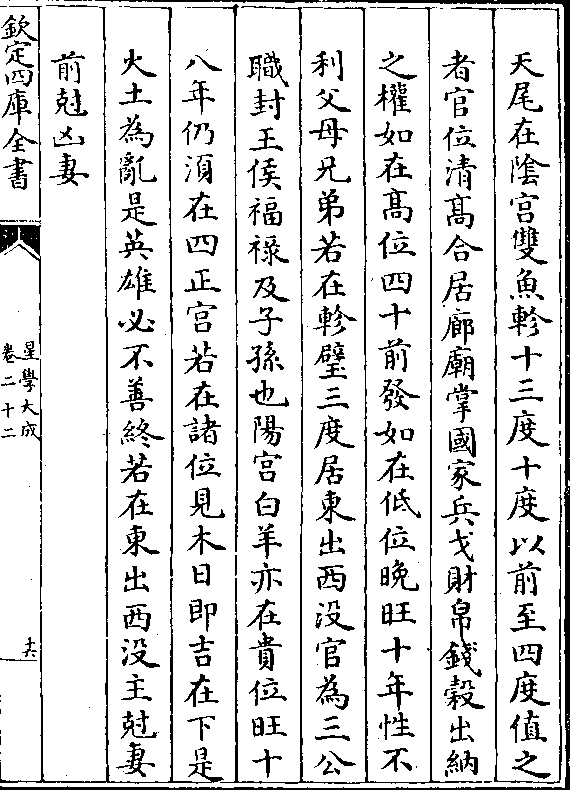 天尾在隂宫雙魚軫十三度十度以前至四度值之
者官位清髙合居廊廟掌國家兵戈財帛錢穀出納
之權如在髙位四十前發如在低位晚旺十年性不
利父母兄弟若在軫璧三度居東出西没官為三公
職封王侯福禄及子孫也陽宫白羊亦在貴位旺十
八年仍須在四正宫若在諸位見木日即吉在下是
火土為亂是英雄必不善終若在東出西没主尅妻
前尅凶妻
欽定四庫全書
星學大成
卷二十二
十六